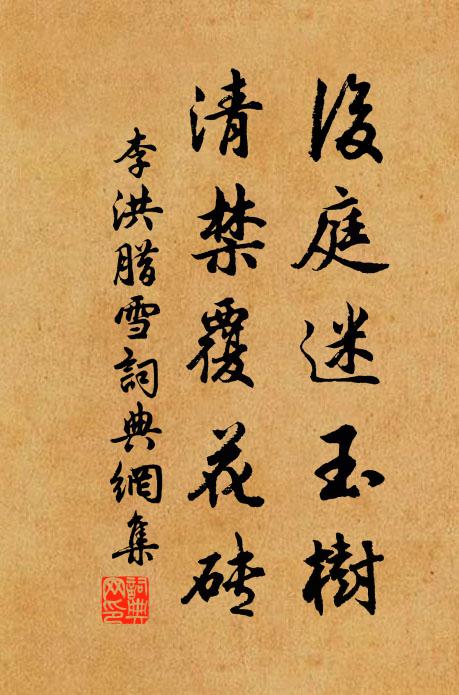 後庭迷玉樹
清禁覆花磚
李洪腊雪詞典網集
詞典網印